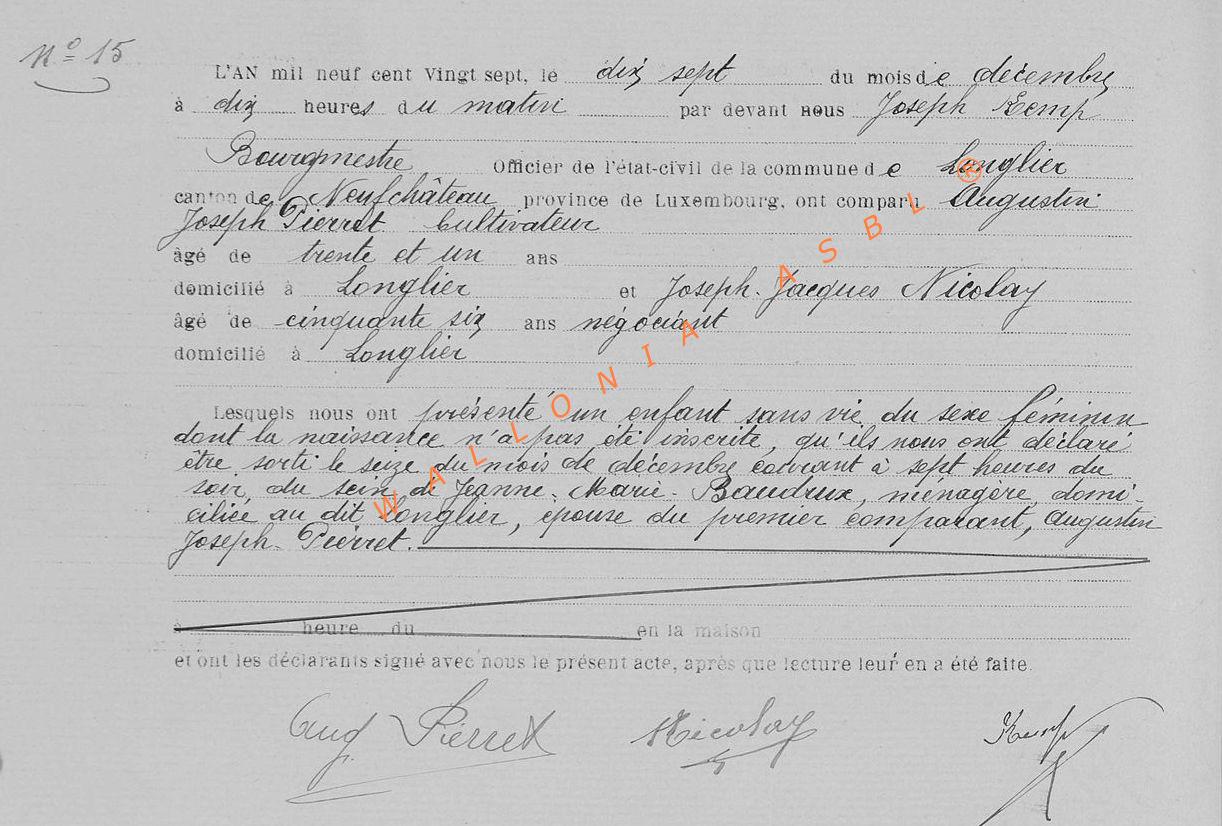 N° 15
L'AN mil neuf cent Vingt sept, le dix sept du mois de décembre
à dix heures du matin par devant nous Joseph Kemp
Bourgmestre Officier de l'état-civil de la commune de Longlier
canton de Neufchâteau province de Luxembourg, ont comparu Augustin
Joseph Pierret Cultivateur
âgé de trente et un ans
domicilié à Longlier et Joseph-Jacques Nicolay
âgé de cinquante six ans négociant
domicilié à Longlier
Lesquels nous ont présenté un enfant sans vie du sexe féminin
dont la naissance n'a pas été inscrite, qu'ils nous ont déclaré
être sorti le seize du mois de décembre courant à sept heures du
soir, du sein de Jeanne-Marie-Baudrux, ménagère, domi-
ciliée au dit Longlier, épouse du premier comparant, Augustin
Joseph-Pierret.
à heure du en la maison
et ont les déclarants signé avec nous le présent acte, après que lecture leur en a été faite.
Aug Pierret Nicolay Kemp
WALLONIA ASBL ®